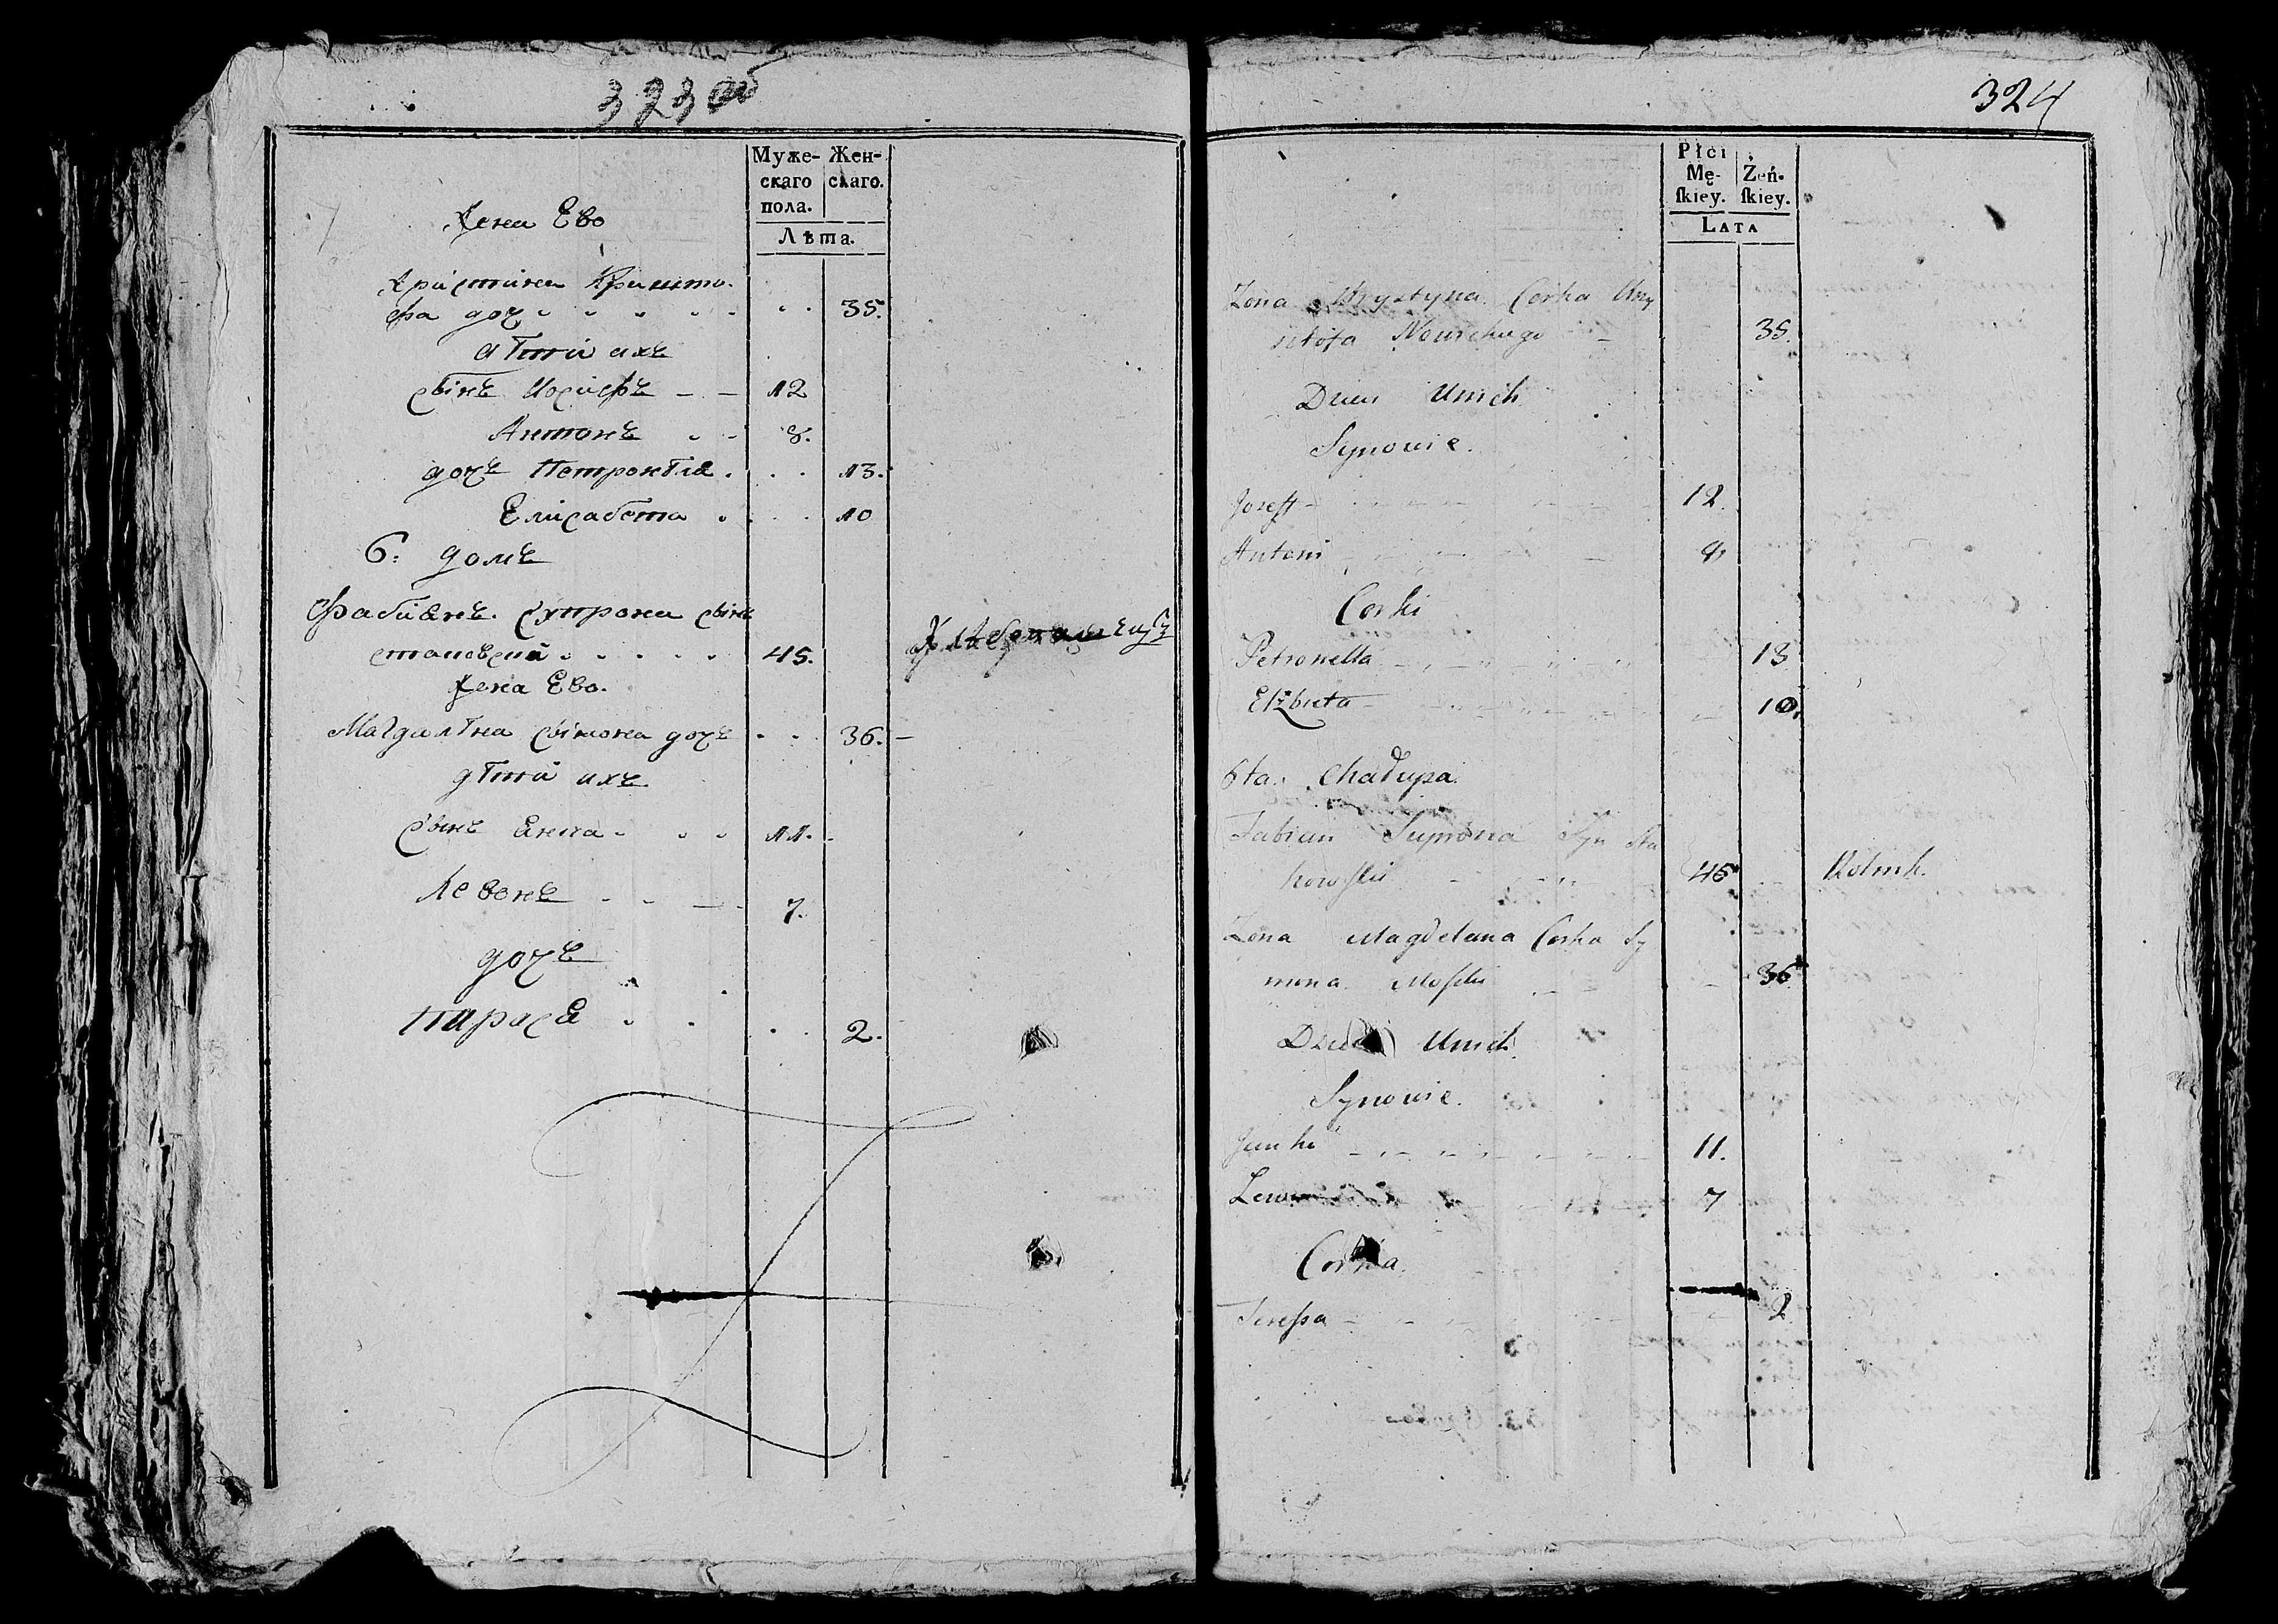 323 об
Муже-
скаго
пола.
Жен-
скаго.
Лѣта.
жена Ево
Христина Кришто-
фа доч 35.
дѣти ихъ
сынъ Иосифъ 12
Антонъ 8.
дочъ Петронѣла 13.
Елисабета 10
6: домъ
Фабиянъ Супрона сынъ
45. Хлебопашецъ
жена Ево.
Магдалѣна Сымона дочъ 36.
дѣти ихъ
Сынъ Янка 11.
Левонъ 7.
дочъ
2.
324
Płci
Mę-
skiey.
Żeń-
skiey.
LATA
Zona Krystyna Corka Krzy
sztofa 35.
Dzieci Unich
Synowie.
Joseff 12.
Antoni 8
Corki
Petronella 13
Elżbieta 10.
6ta. Chałupa.
Fabian Suprona Syn Sta
nowski 45 Rolnik.
Zona Magdelana Corka Sy
mona 36
Dzieci Unich.
Synowie.
Janko 11.
Lewon 7
Corka.
Teressa 2